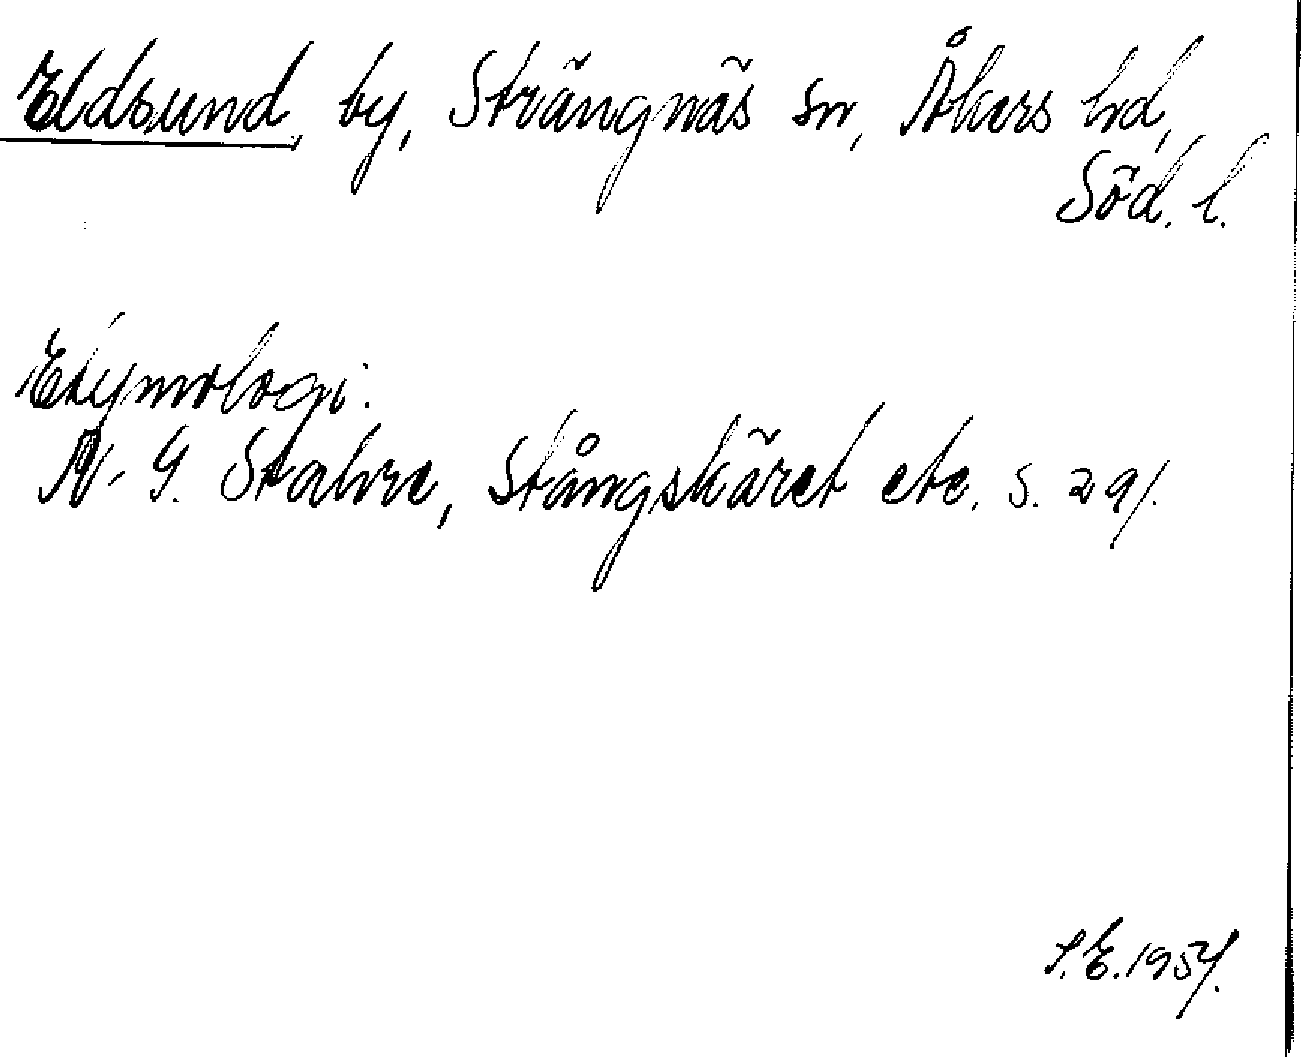 Eldsund, by, Strängnäs sn, Åkers hd,
Söd. l.
Etymologi:
N.-G. Stahre, Stångskäret etc. s. 29.
S.E. 1957.